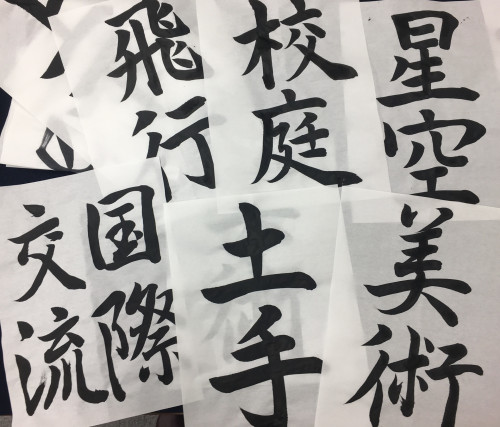 飛行
校庭
星空
国際
交流
土手
美術